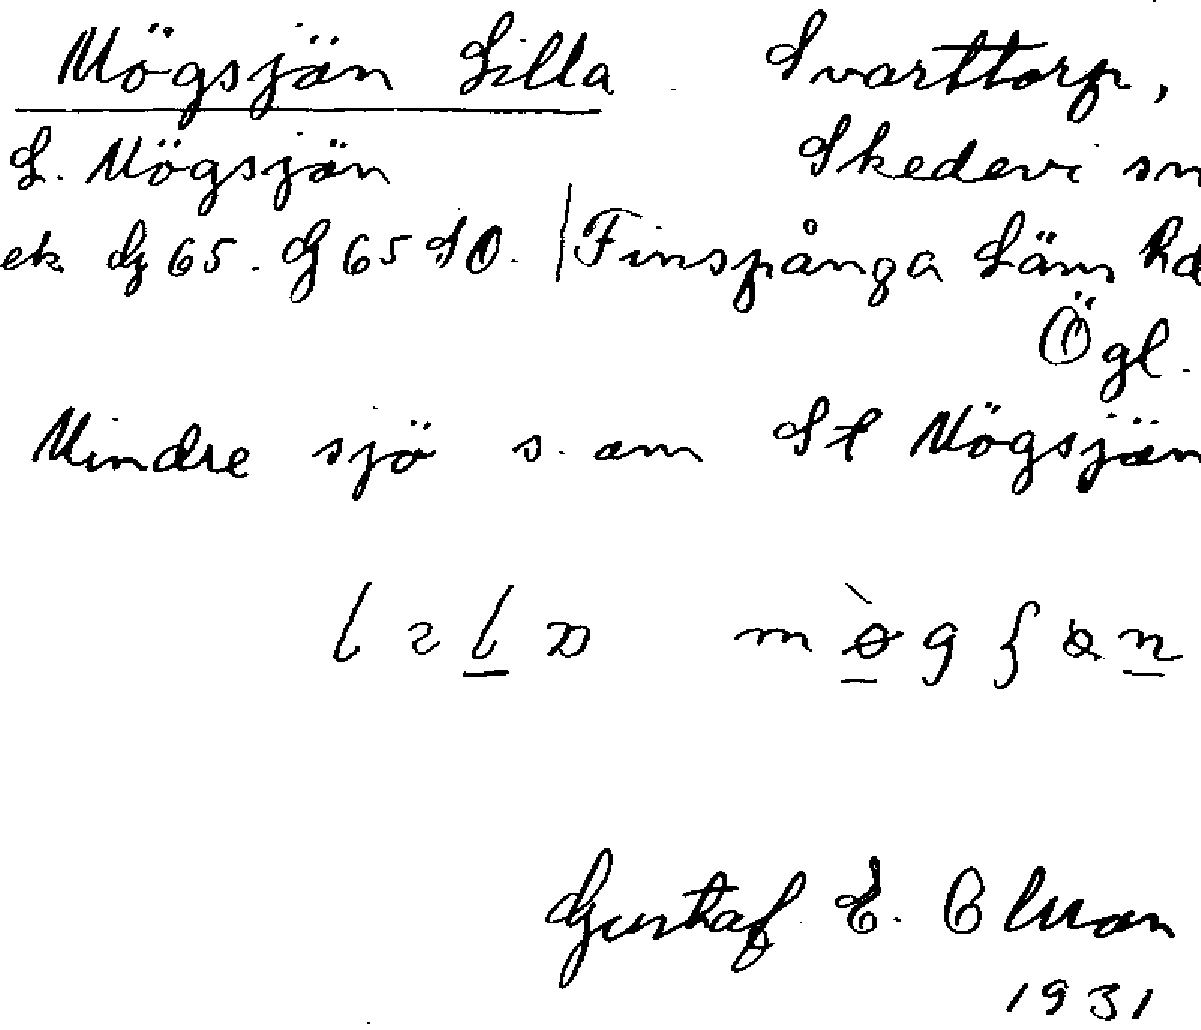 Mögsjön Lilla Svarttorp,
L. Mögsjön Skedevi sn
ek Gg 65. Gg 65 SO. Finspånga Läns hd
Ögl.
Mindre sjö s. om St Mögsjön
Gustaf E.
1931